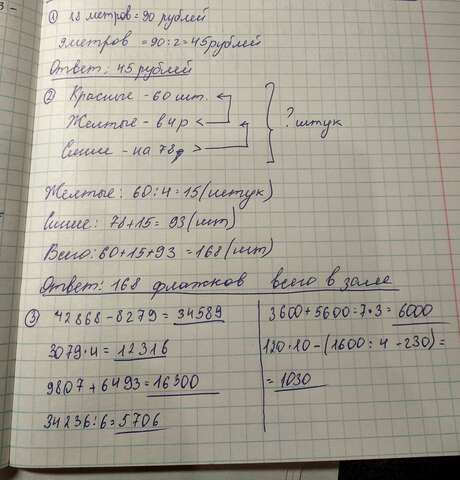 ① 18 метров = 90 рублей
9 метров = 90:2 = 45 рублей
Ответ: 45 рублей
② Красные - 60 шт.
Желтые - в 4 р <
Синие - на 78 >
? штук
Желтые: 60:4 = 15 (штук)
Синие: 78+15 = 93 (шт)
Всего: 60+15+93 = 168 (шт)
Ответ: 168 флажков всего в зале
③ 42868 - 8279 = 34589
3079·4 = 12316
9807 + 6493 = 16300
34236:6 = 5706
3600 + 5600:7·3 = 6000
120·10 - (1600:4 - 230) =
= 1030